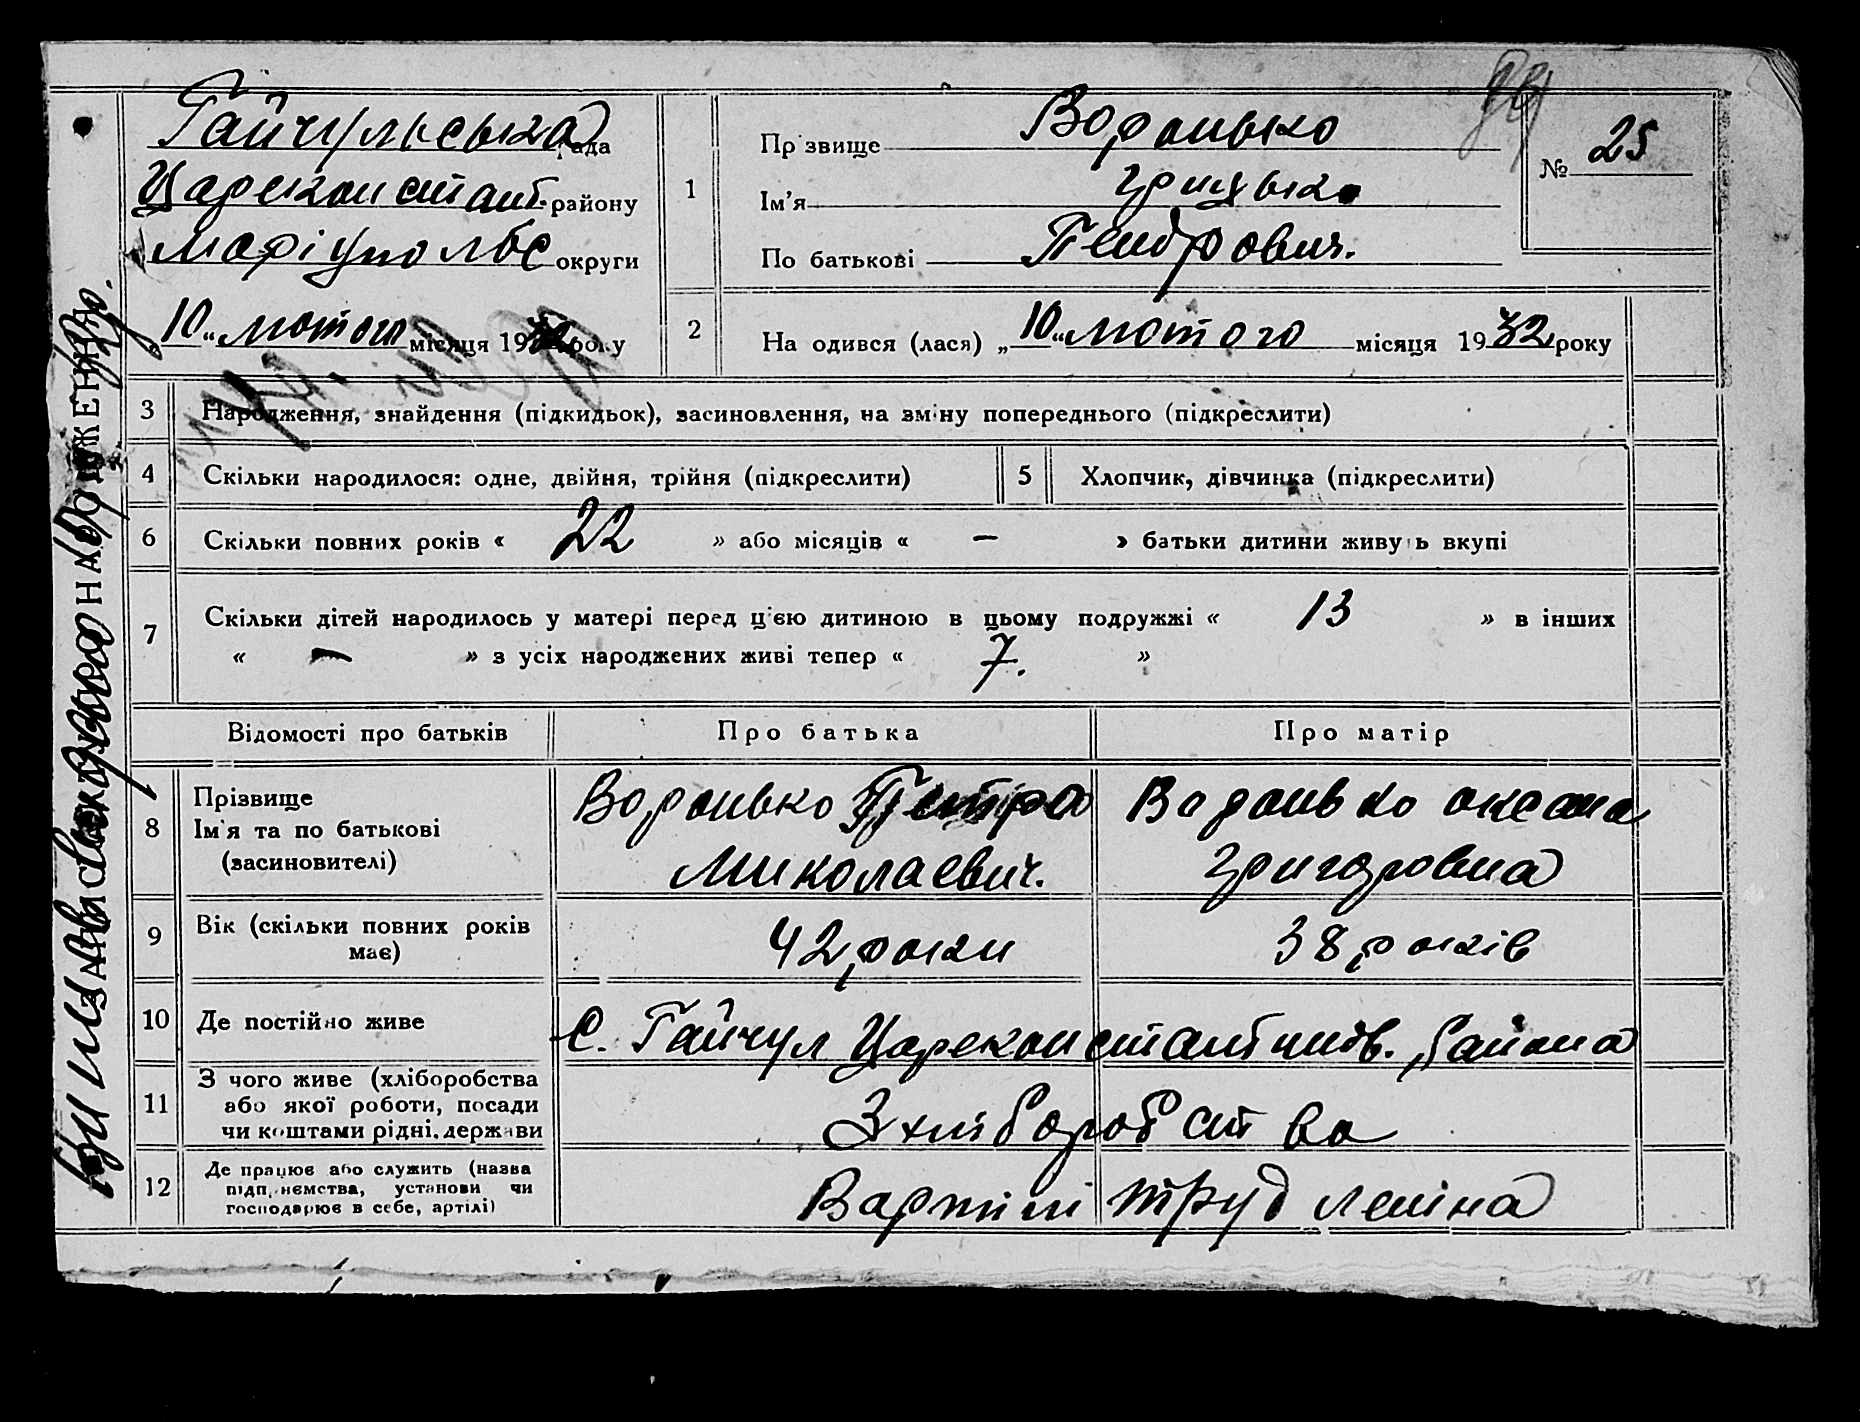 Гайчульська рада
Цареконстант. району
Маріуполбс округи
10 „ лютого місяця 1932 року
1
Прізвище Воронько
Ім'я Грицько
По батькові Петрович.
№ 25
2
На одився (лася) „ 10 “ лютого місяця 1932 року
3
Народження, знайдення (підкидьок), засиновлення, на зміну попереднього (підкреслити)
4
Скільки народилося: одне, двійня, трійня (підкреслити)
5
Хлопчик, дівчинка (підкреслити)
6
Скільки повних років « 22 » або місяців « — » батьки дитини живуть вкупі
7
Скільки дітей народилось у матері перед ц'єю дитиною в цьому подружжі « 13 » в інших
« — » з усіх народжених живі тепер « 7. »
Відомості про батьків
Про батька
Про матір
8
Прізвище
Ім'я та по батькові
(засиновителі)
Воронько Петро
Миколаевич.
Воронько оксана
Григоровна
9
Вік (скільки повних років
має)
42 роки
38 років
10
Де постійно живе
С. Гайчул Цареконстантинов. Района
11
З чого живе (хліборобства
або якої роботи, посади
чи коштами рідні, держави
З хліборобства
12
Де працює або служить (назва
підприємства, установи чи
господарює в себе, артілі)
Вартілі труд леніна